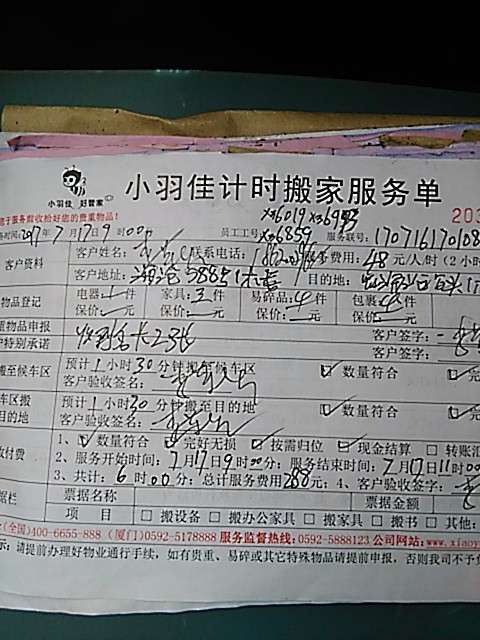 小羽佳 好管家
小羽佳计时搬家服务单
您于服务前收拾好您的贵重物品！ 203
务时间：2017年7月17日9时00分 员工工号 xm6019 xm6859 服务联号：170716170108
客户资料 客户姓名： 联系电话： 费用：48元/人/时（2小时
客户地址：海沧 目的地：
物品登记 电器：1件 家具：3件 易碎品：件 包裹：件
保价：元 保价：元 保价：元 保价：元
重物品申报 客户签字：
户特别承诺 收到金卡23张 客户签字：
搬至候车区 预计1小时30分钟搬至候车区 数量符合 完
客户验收签名：
车区搬目的地 预计1小时30分钟搬至目的地 数量符合 完
客户验收签名：
收付费 1、数量符合 完好无损 按需归位 现金结算 转账汇
2、服务开始时间：7月17日9时00分；服务结束时间：7月17日11时00
3、共计：6时00分；总计服务费用288元；4、客户验收签字：
据栏 票据名称 票据金额
项目 搬设备 搬办公家具 搬家具 搬书 其他：
(全国)400-6655-888 (厦门)0592-5178888 服务监督热线：0592-5888123 公司网站：www.xiaoy
示：请提前办理好物业通行手续，如有贵重、易碎或其它特殊物品请提前申报，否则我司不予